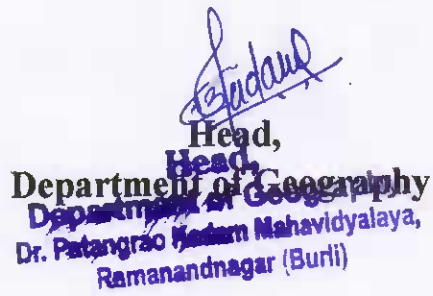 Head,
Head,
Department of Geography
Department of Geography
Dr. Patangrao Kadam Mahavidyalaya,
Ramanandnagar (Burli)